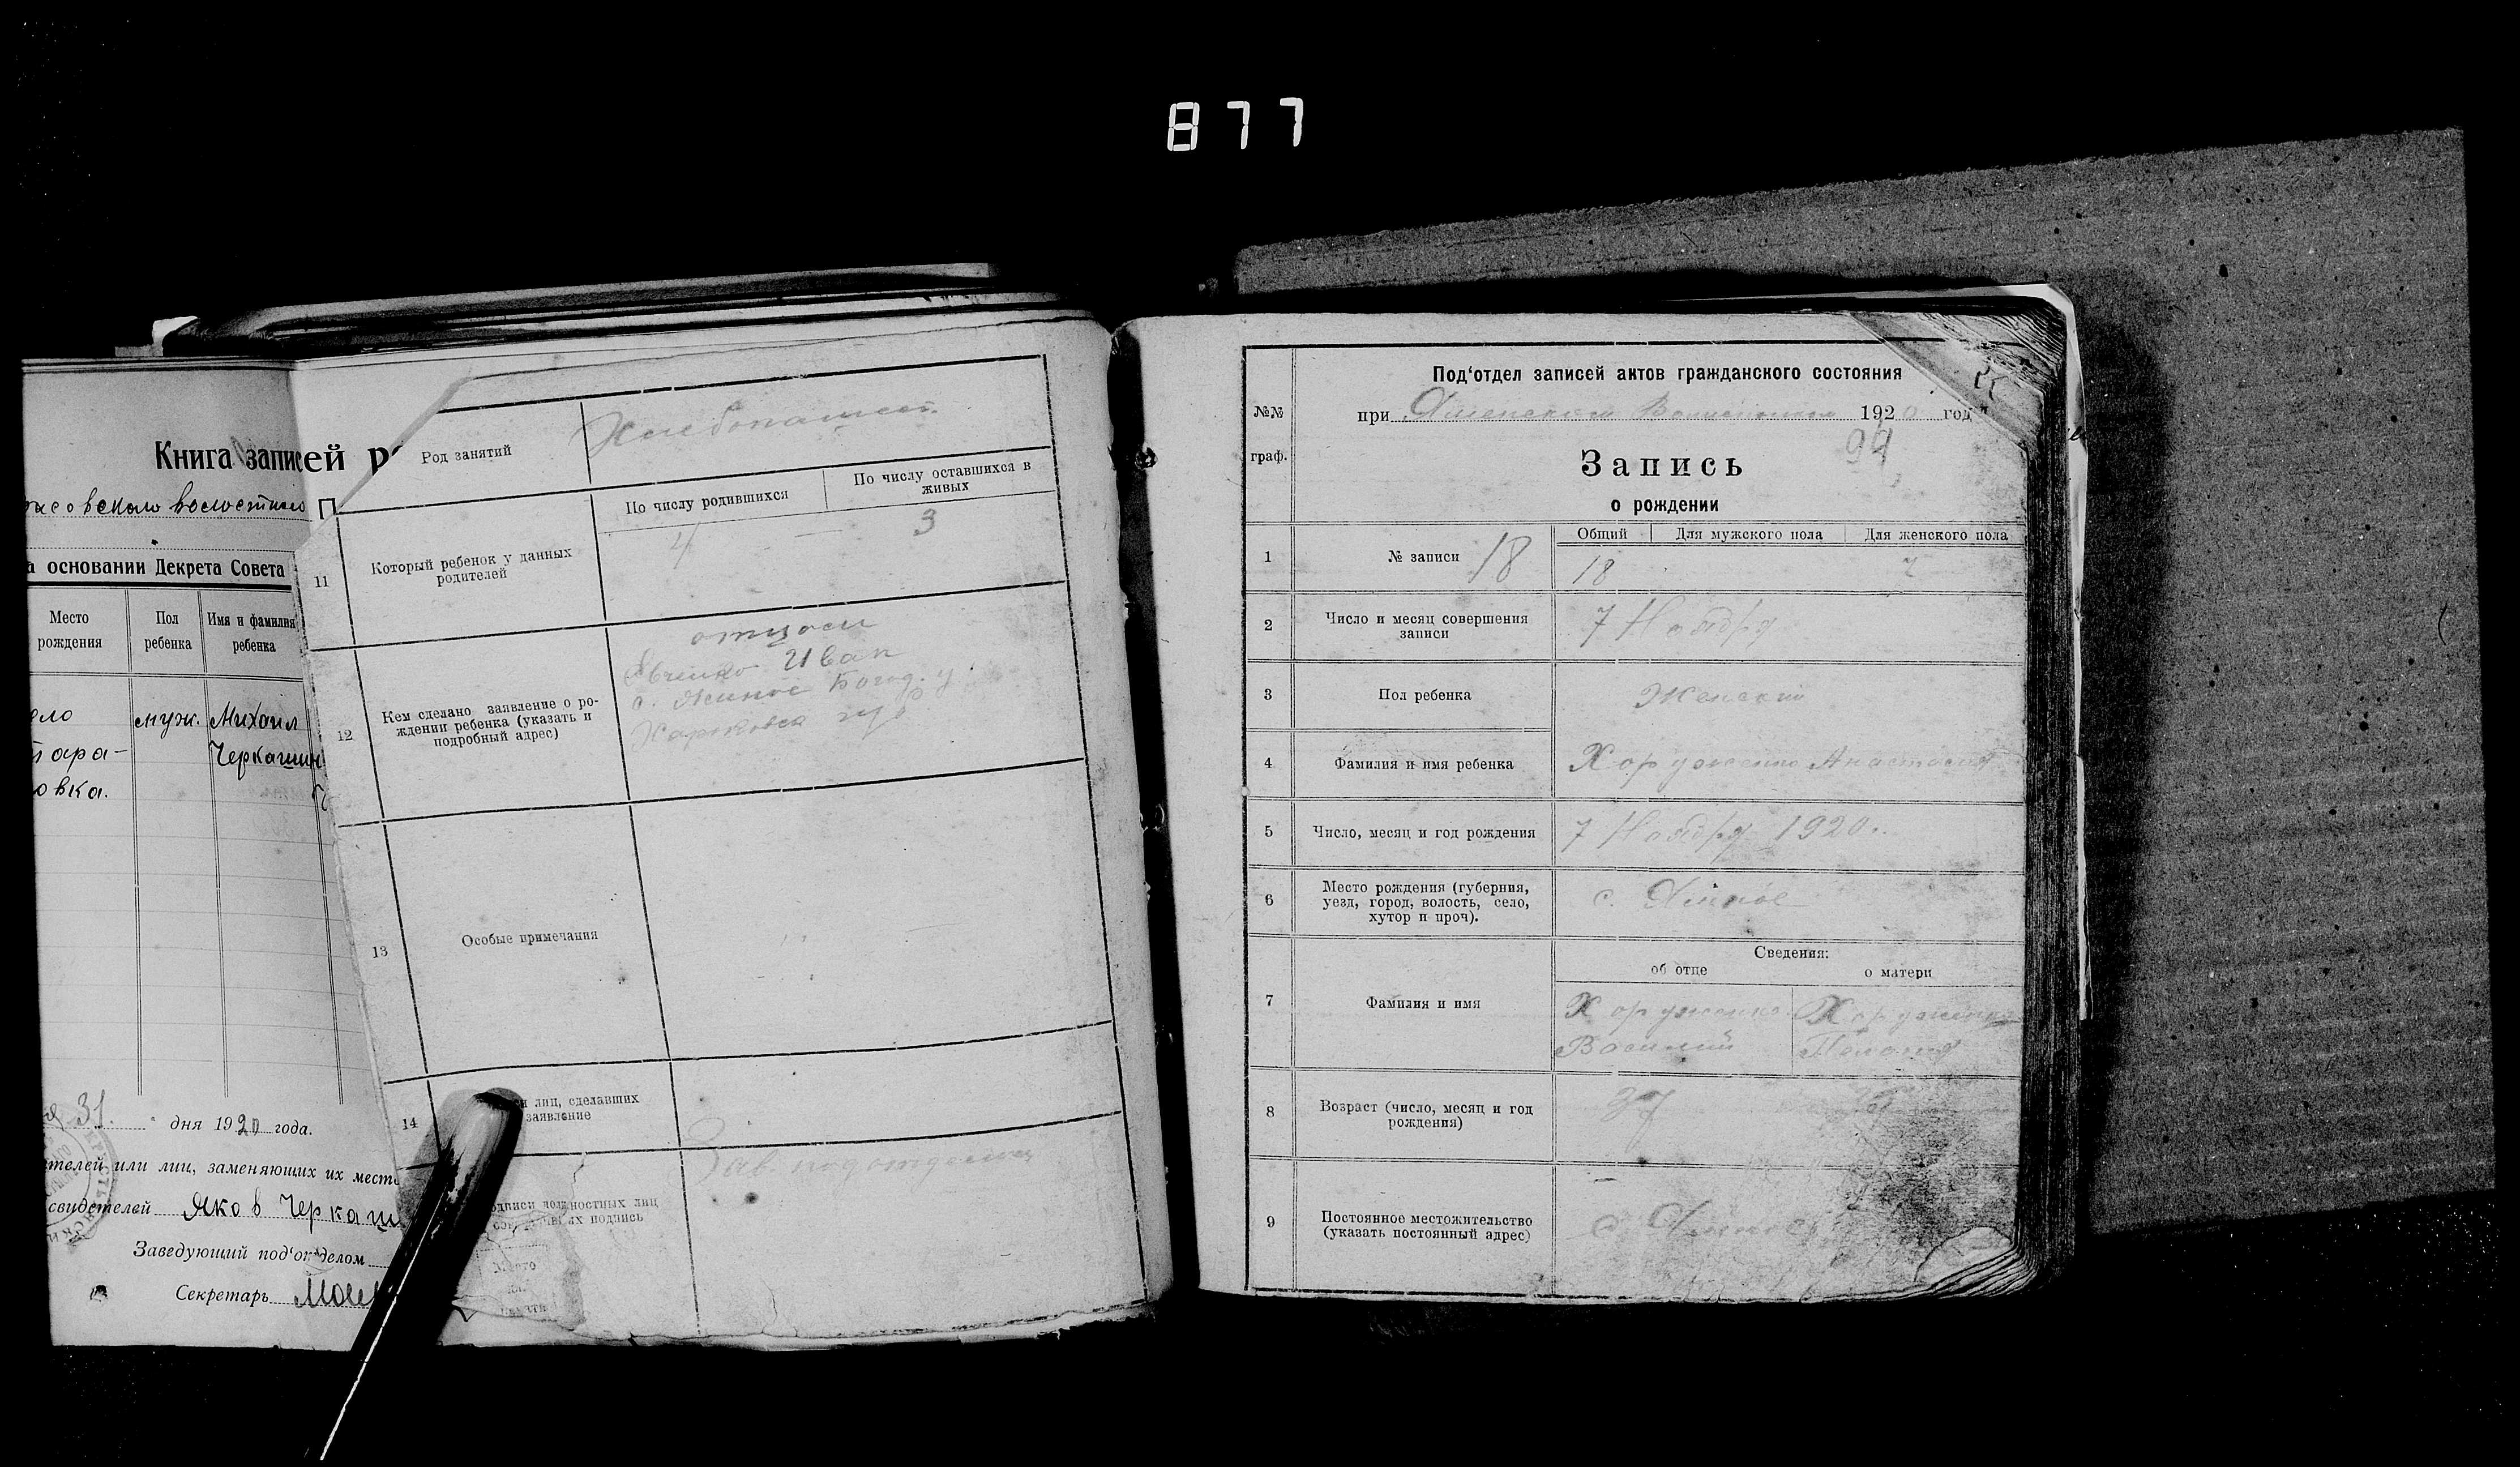 877
Книга записей р
волостного
а основании Декрета Совета
Место
рождения
Пол
ребенка
Имя и фамилия
ребенка
ело
тара-
овка.
муж.
Михаил
Черкашин
31. дня 1920 года.
ителей или лиц, заменяющих их место
свидетелей Яков Черкаш
Заведующий под‘отделом
Секретарь
Род занятий
Хлебопашест
11
Который ребенок у данных
родителей
По числу родившихся
По числу оставшихся в
живых
4 — 3
12
Кем сделано заявление о ро-
ждении ребенка (указать и
подробный адрес)
отцом
Иван
с. Ямное Богод. у.
Харковск губ
13
Особые примечания
14
и лиц, сделавших
заявление
Зав подотделом
одписи должностных лиц
подпись
Место
№№
граф.
Под‘отдел записей актов гражданского состояния
при Яменском 1920 год
94
Запись
о рождении
1
№ записи 18
Общий
Для мужского пола
Для женского пола
18
2
Число и месяц совершения
записи
7 Ноября
3
Пол ребенка
Женский
4
Фамилия и имя ребенка
Хоруженко Анастасия
5
Число, месяц и год рождения
7 Ноября 1920.
6
Место рождения (губерния,
уезд, город, волость, село,
хутор и проч).
с. Ямное
Сведения:
об отце
о матери
7
Фамилия и имя
Хоруженко
Василий
Хоруженко
Пелагия
8
Возраст (число, месяц и год
рождения)
37
9
Постоянное местожительство
(указать постоянный адрес)
с Ямное